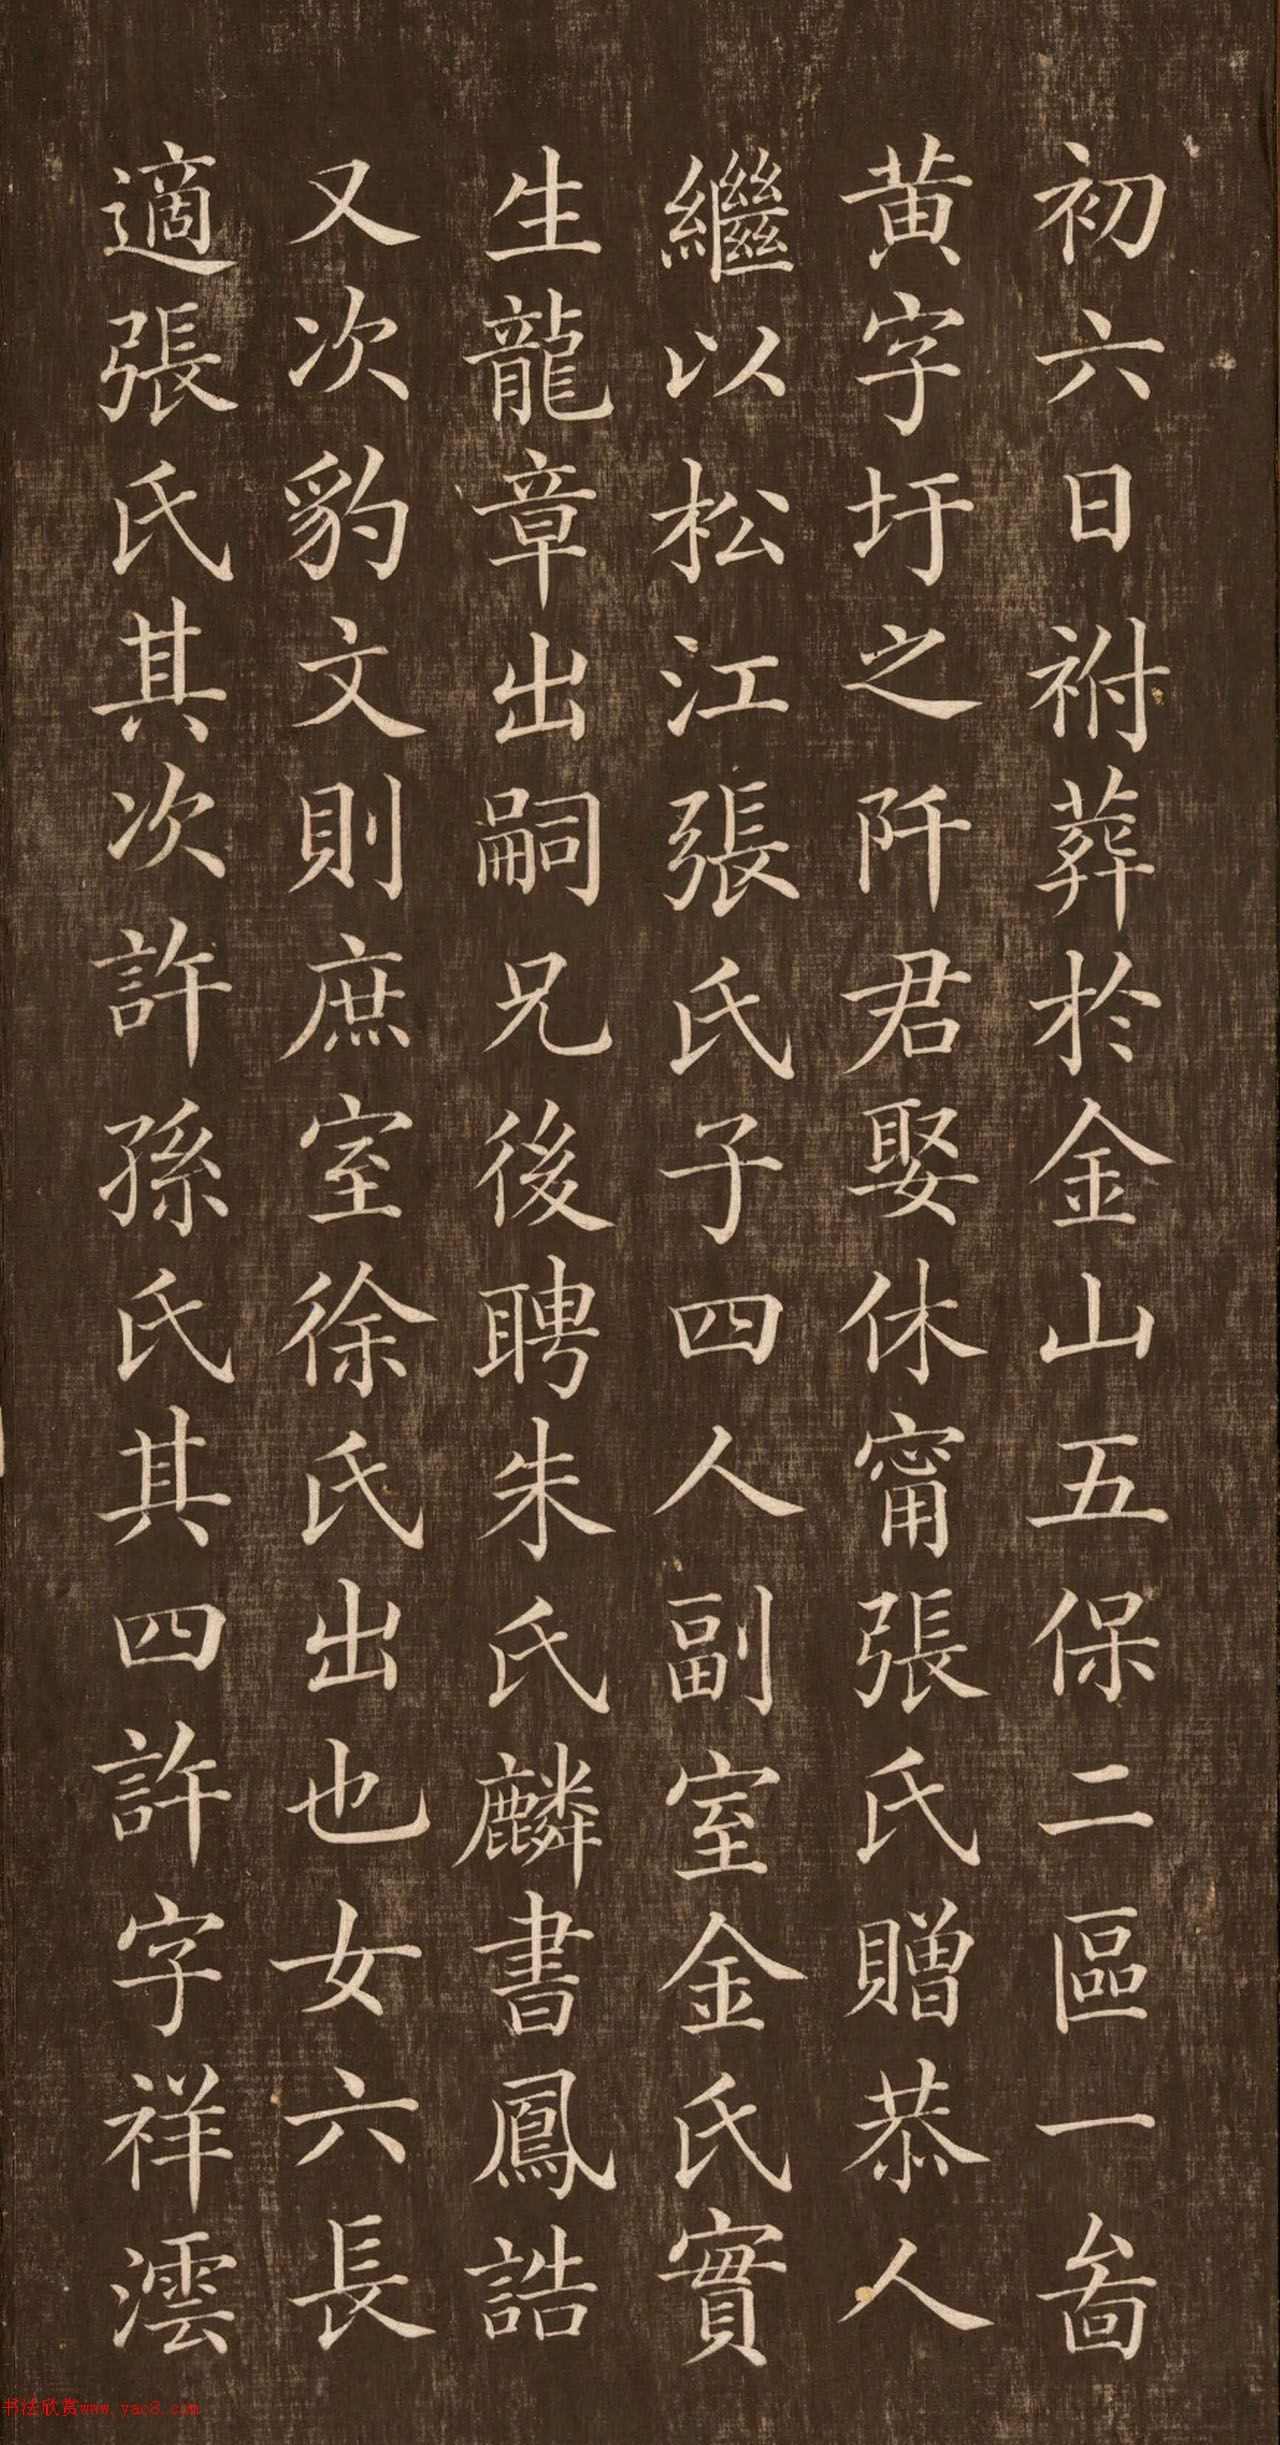 初六日祔葬於金山五保二區一啚
黃字圩之阡君娶休甯張氏贈恭人
繼以松江張氏子四人副室金氏實
生龍章出嗣兄後聘朱氏麟書鳳誥
又次豹文則庶室徐氏出也女六長
適張氏其次許孫氏其四許字祥澐
书法欣赏www.yac8.com